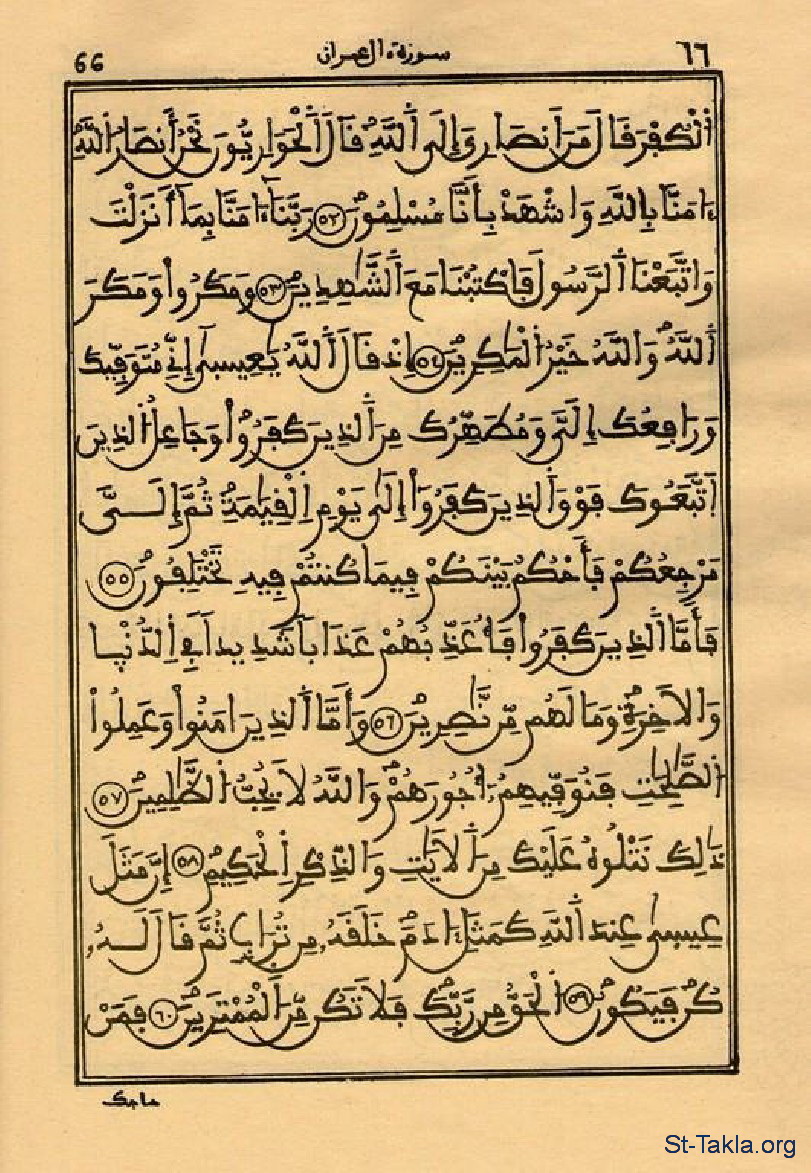 66 سورة ءال عمران ٦٦
اَ۬لْكُفْرَ قَالَ مَنَ اَنصَارِيَ إِلَى اَ۬للَّهِ قَالَ اَ۬لْحَوَارِيُّونَ نَحْنُ أَنصَارُ اُ۬للَّهِ
ءَامَنَّا بِاللَّهِ وَاشْهَدْ بِأَنَّا مُسْلِمُونَ ٥٢ رَبَّنَا ءَامَنَّا بِمَا أَنزَلْتَ
وَاتَّبَعْنَا اَ۬لرَّسُولَ فَاكْتُبْنَا مَعَ اَ۬لشَّٰهِدِينَ ٥٣ وَمَكَرُواْ وَمَكَرَ
اَ۬للَّهُ وَاللَّهُ خَيْرُ اُ۬لْمَٰكِرِينَ ٥٤ إِذْ قَالَ اَ۬للَّهُ يَٰعِيسَىٰ إِنِّي مُتَوَفِّيكَ
وَرَافِعُكَ إِلَيَّ وَمُطَهِّرُكَ مِنَ اَ۬لذِينَ كَفَرُواْ وَجَاعِلُ اُ۬لذِينَ
اَ۪تَّبَعُوكَ فَوْقَ اَ۬لذِينَ كَفَرُواْ إِلَىٰ يَوْمِ اِ۬لْقِيَٰمَةِ ثُمَّ إِلَيَّ
مَرْجِعُكُمْ فَأَحْكُمُ بَيْنَكُمْ فِيمَا كُنتُمْ فِيهِ تَخْتَلِفُونَ ٥٥
فَأَمَّا اَ۬لذِينَ كَفَرُواْ فَأُعَذِّبُهُمْ عَذَاباً شَدِيداً فِي اِ۬لدُّنْيا
وَالَاخِرَةِ وَمَا لَهُم مِّن نَّٰصِرِينَ ٥٦ وَأَمَّا اَ۬لذِينَ ءَامَنُواْ وَعَمِلُواْ
اُ۬لصَّٰلِحَٰتِ فَنُوَفِّيهِمُ أُجُورَهُمْ وَاللَّهُ لَا يُحِبُّ اُ۬لظَّٰلِمِينَ ٥٧
ذَٰلِكَ نَتْلُوهُ عَلَيْكَ مِنَ اَ۬لَايَٰتِ وَالذِّكْرِ اِ۬لْحَكِيمِ ٥٨ إِنَّ مَثَلَ
عِيسَىٰ عِندَ اَ۬للَّهِ كَمَثَلِ ءَادَمَ خَلَقَهُ مِن تُرَابٍ ثُمَّ قَالَ لَهُ
كُن فَيَكُونُ ٥٩ اُ۬لْحَقُّ مِن رَّبِّكَ فَلَا تَكُن مِّنَ اَ۬لْمُمْتَرِينَ ٦٠ فَمَنْ
حاجك
St-Takla.org